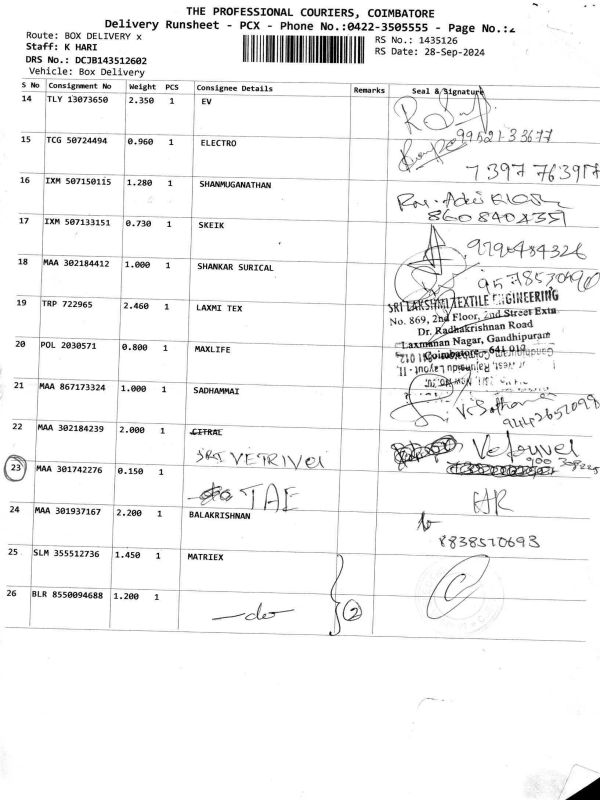 THE PROFESSIONAL COURIERS, COIMBATORE
Delivery Runsheet - PCX - Phone No.:0422-3505555 - Page No.:2
Route: BOX DELIVERY x
RS No.: 1435126
Staff: K HARI
RS Date: 28-Sep-2024
DRS No.: DCJB143512602
Vehicle: Box Delivery
S No Consignment No Weight PCS Consignee Details Remarks Seal & Signature
14 TLY 13073650 2.350 1 EV
15 TCG 50724494 0.960 1 ELECTRO
16 IXM 507150115 1.280 1 SHANMUGANATHAN
8608402351
17 IXM 507133151 0.730 1 SKEIK
18 MAA 302184412 1.000 1 SHANKAR SURICAL
9578530490
19 TRP 722965 2.460 1 LAXMI TEX
SRI LAKSHMI TEXTILE ENGINEERING
No. 869, 2nd Floor, 2nd Street Extn
Dr. Radhakrishnan Road
20 POL 2030571 0.800 1 MAXLIFE
Laxmanan Nagar, Gandhipuram
Coimbatore - 641 012
21 MAA 867173324 1.000 1 SADHAMMAI
9442652098
22 MAA 302184239 2.000 1 CITRAL
SRI VETRIVEL
23 MAA 301742276 0.150 1
TAE
24 MAA 301937167 2.200 1 BALAKRISHNAN
8838570693
25 SLM 355512736 1.450 1 MATRIEX
26 BLR 8550094688 1.200 1
-do-
2